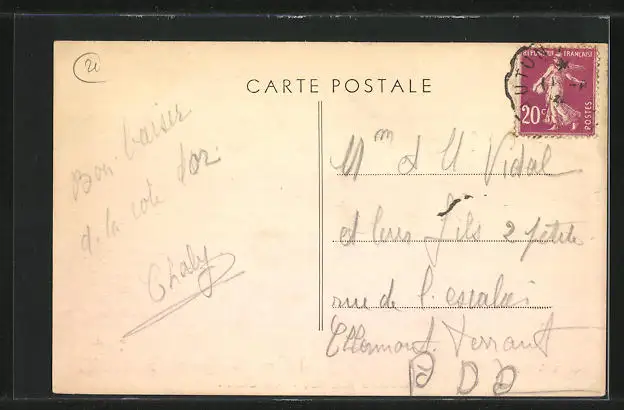 20
CARTE POSTALE
REPUBLIQUE FRANÇAISE
20c
POSTES
Bon baiser
d. la cote d'or
Chaly
Mm et M Vidal
et leur fils 2 petite
rue de l'escalier
Clermont. Ferrant
P D D